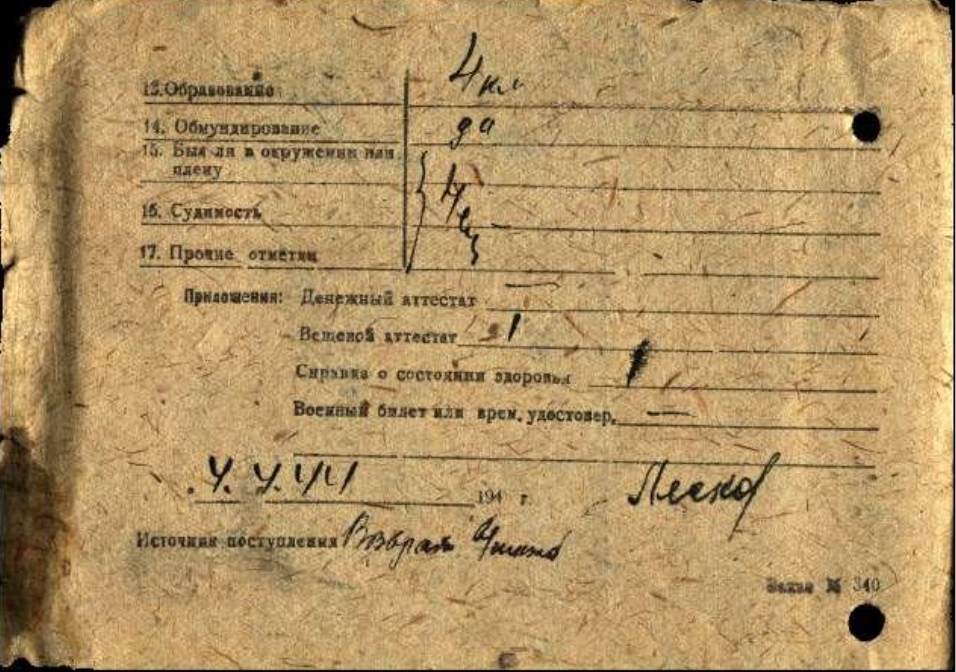 13. Образование 4 кл
14. Обмундирование да
15. Был ли в окружении или плену
16. Судимость
17. Прочие отметки
Приложения: Денежный аттестат —
Вещевой аттестат 1
Справка о состоянии здоровья 1
Военный билет или врем. удостовер. —
4.4.44 194 г.
Источник поступления
Заказ № 340